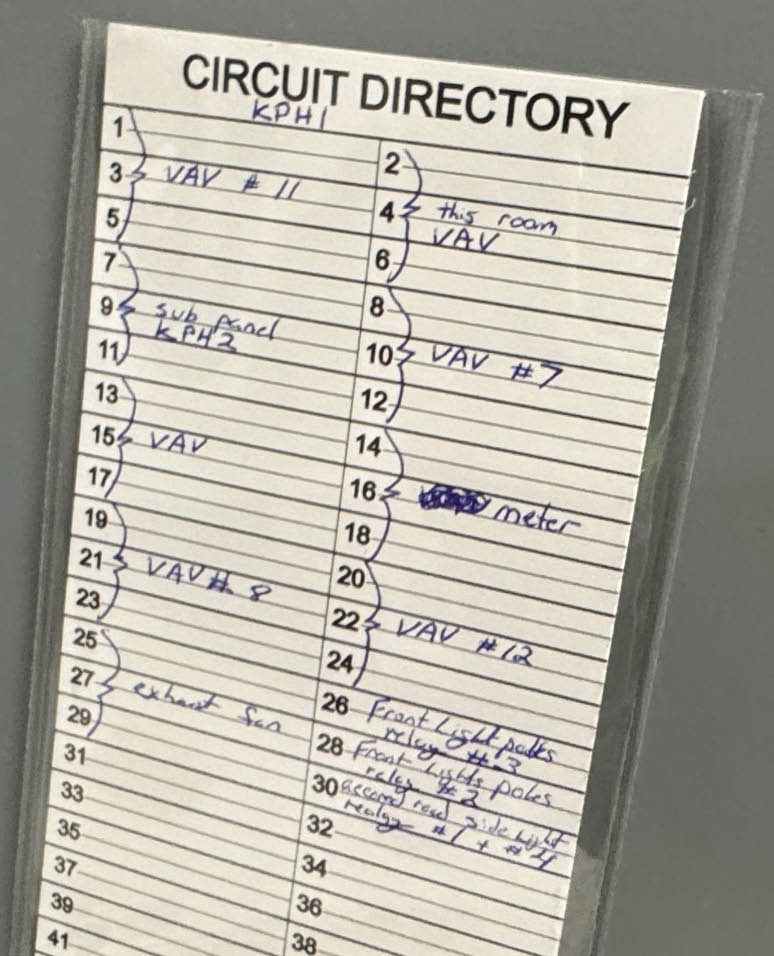 CIRCUIT DIRECTORY
KPH1
1
3 VAV # 11
5
7
9 sub panel
KPH2
11
13
15 VAV
17
19
21 VAV # 8
23
25
27 exhaust fan
29
31
33
35
37
39
41
2
4 this room
VAV
6
8
10 VAV #7
12
14
16 meter
18
20
22 VAV #12
24
26 Front Light
relay # 3
28 Front Lights poles
relay # 2
30 side light
#1 + #4
32
34
36
38